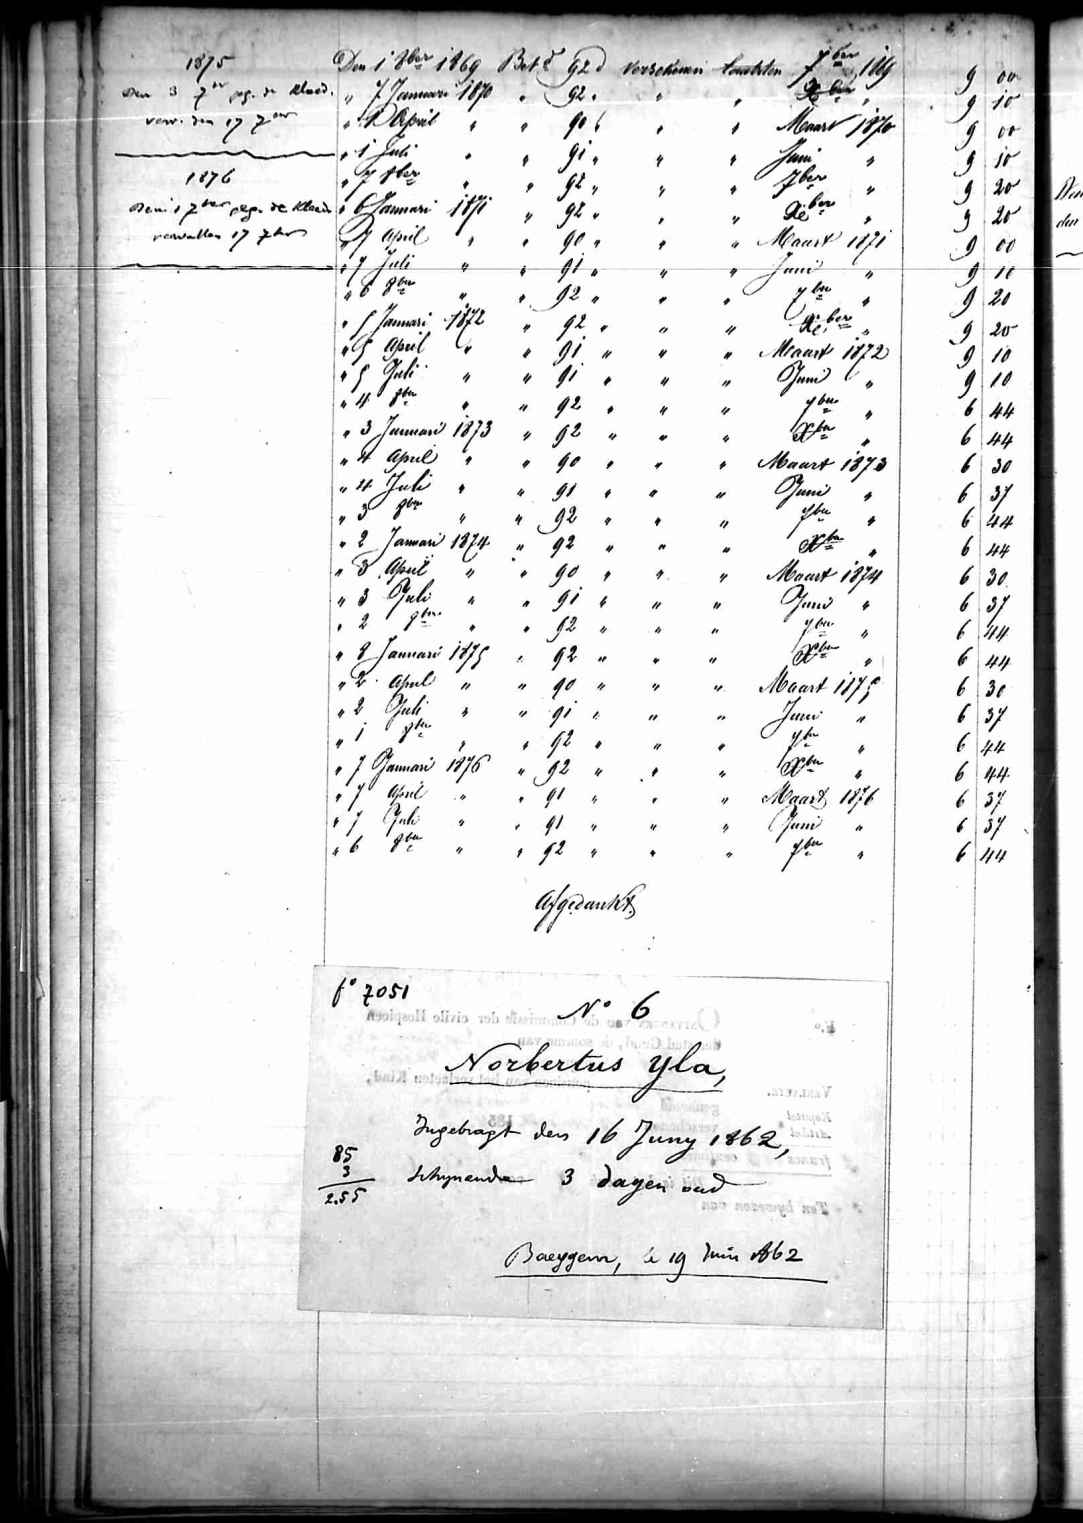 1875
den 3 7ber geg. de kleed.
verv. den 17 7ber
1876
den 1 7ber geg. de kleed.
vervallen 17 7ber
Den 1 8ber 1869 Bet d 92 d verschenen laatsten 7ber 1869 9 00
" 7 Januari 1870 " 92 " " " Xber " 9 10
" 1 April " " 90 " " " Maart 1870 9 00
" 1 Juli " " 91 " " " Juni " 9 10
" 7 8ber " " 92 " " " 7ber " 9 20
" 6 Januari 1871 " 92 " " " Xber " 9 20
" 7 April " " 90 " " " Maart 1871 9 00
" 7 Juli " " 91 " " " Juni " 9 10
" 6 8ber " " 92 " " " 7ber " 9 20
" 5 Januari 1872 " 92 " " " Xber " 9 20
" 5 April " " 91 " " " Maart 1872 9 10
" 5 Juli " " 91 " " " Juni " 9 10
" 4 8ber " " 92 " " " 7ber " 6 44
" 3 Januari 1873 " 92 " " " Xber " 6 44
" 4 April " " 90 " " " Maart 1873 6 30
" 4 Juli " " 91 " " " Juni " 6 37
" 3 8ber " " 92 " " " 7ber " 6 44
" 2 Januari 1874 " 92 " " " Xber " 6 44
" 3 April " " 90 " " " Maart 1874 6 30
" 3 Juli " " 91 " " " Juni " 6 37
" 2 8ber " " 92 " " " 7ber " 6 44
" 8 Januari 1875 " 92 " " " Xber " 6 44
" 2 April " " 90 " " " Maart 1875 6 30
" 2 Juli " " 91 " " " Juni " 6 37
" 1 8ber " " 92 " " " 7ber " 6 44
" 7 Januari 1876 " 92 " " " Xber " 6 44
" 7 April " " 91 " " " Maart 1876 6 37
" 7 Juli " " 91 " " " Juni " 6 37
" 6 8ber " " 92 " " " 7ber " 6 44
Afgedankt.
f° 7051
N° 6
Norbertus Yla,
Ingebragt den 16 Juny 1862,
schynende 3 dagen oud
85
3
2.55
Baeygem, le 19 Juin 1862